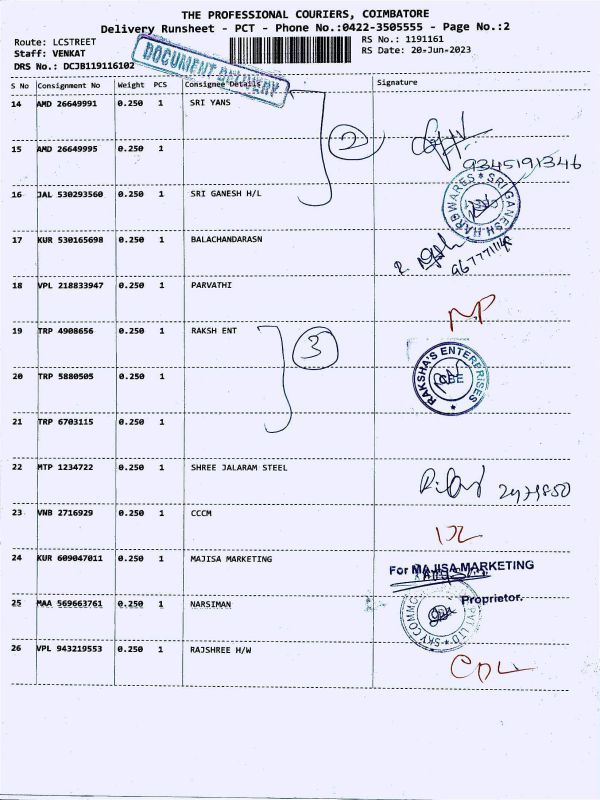 THE PROFESSIONAL COURIERS, COIMBATORE
Delivery Runsheet - PCT - Phone No.:0422-3505555 - Page No.:2
Route: LCSTREET
RS No.: 1191161
Staff: VENKAT
RS Date: 20-Jun-2023
DRS No.: DCJB119116102
DOCUMENT DELIVERY
S No Consignment No Weight PCS Consignee Details Signature
14 AMD 26649991 0.250 1 SRI YANS
2
15 AMD 26649995 0.250 1
9345191346
16 JAL 530293560 0.250 1 SRI GANESH H/L
SRI GANESH HARDWARES
17 KUR 530165698 0.250 1 BALACHANDARASN
18 VPL 218833947 0.250 1 PARVATHI
19 TRP 4908656 0.250 1 RAKSH ENT
3
20 TRP 5880505 0.250 1
RAKSHA'S ENTERPRISES
CBE
21 TRP 6703115 0.250 1
22 MTP 1234722 0.250 1 SHREE JALARAM STEEL
23 VNB 2716929 0.250 1 CCCM
24 KUR 609047011 0.250 1 MAJISA MARKETING
For MAJISA MARKETING
25 MAA 569663761 0.250 1 NARSIMAN
Proprietor.
SKY COMM PVT LTD
26 VPL 943219553 0.250 1 RAJSHREE H/W